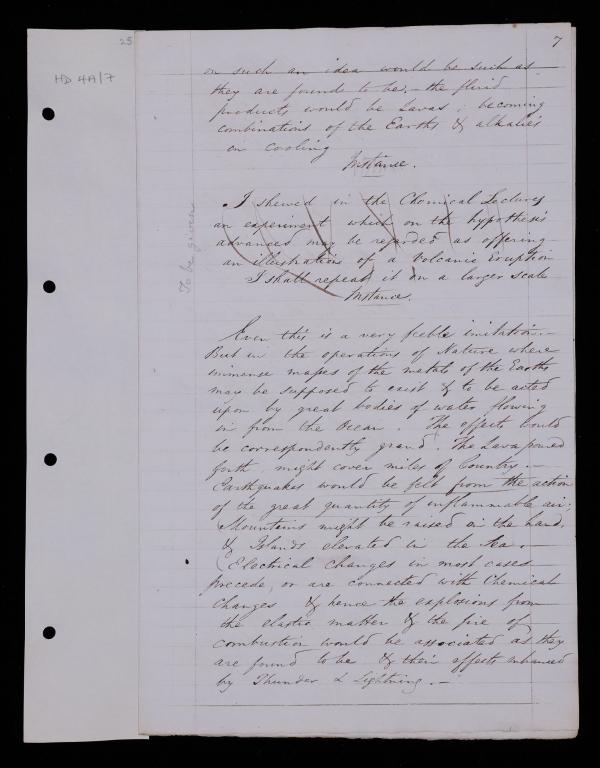 25
7
HD 4A/7
on such an idea would be such as
they are found to be; – the fluid
products would be Lavas; becoming
combinations of the Earths & alkalies
on cooling
Instance.
To be given
I shewed in the Chemical Lectures
an experiment which on the hypothesis
advanced may be regarded as offering
an illustration of a Volcanic Eruption
I shall repeat it on a larger scale
Instance.
Even this is a very feeble imitation. –
But in the operations of Nature where
immense masses of the metals of the Earths
may be supposed to exist & to be acted
upon by great bodies of water flowing
in from the Ocean. The effects would
be correspondently grand. The Lava poured
forth might cover miles of Country. –
Earthquakes would be felt from the action
of the great quantity of inflammable air;
Mountains might be raised on the land,
& Islands elevated in the Sea. –
(Electrical changes in most cases
precede, or are connected with Chemical
Changes & hence the explosions from
the elastic matter & the fire of
combustion would be associated as they
are found to be & their effects enhanced
by Thunder & Lightning. –